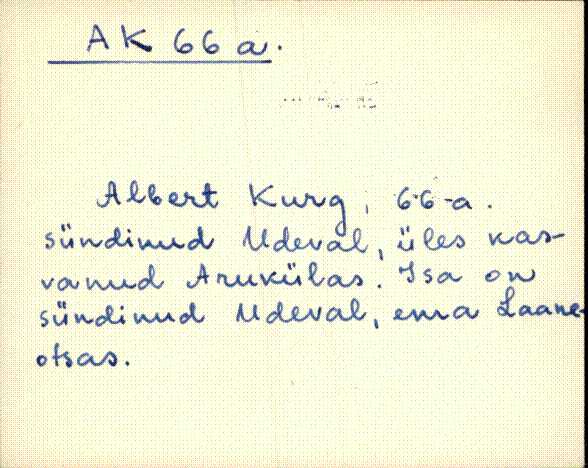 AK 66 a.
Albert Kurg, 66-a.
sündinud Udeval, üles kas-
vanud Arukülas. Isa on
sündinud Udeval, ema Laane-
otsas.